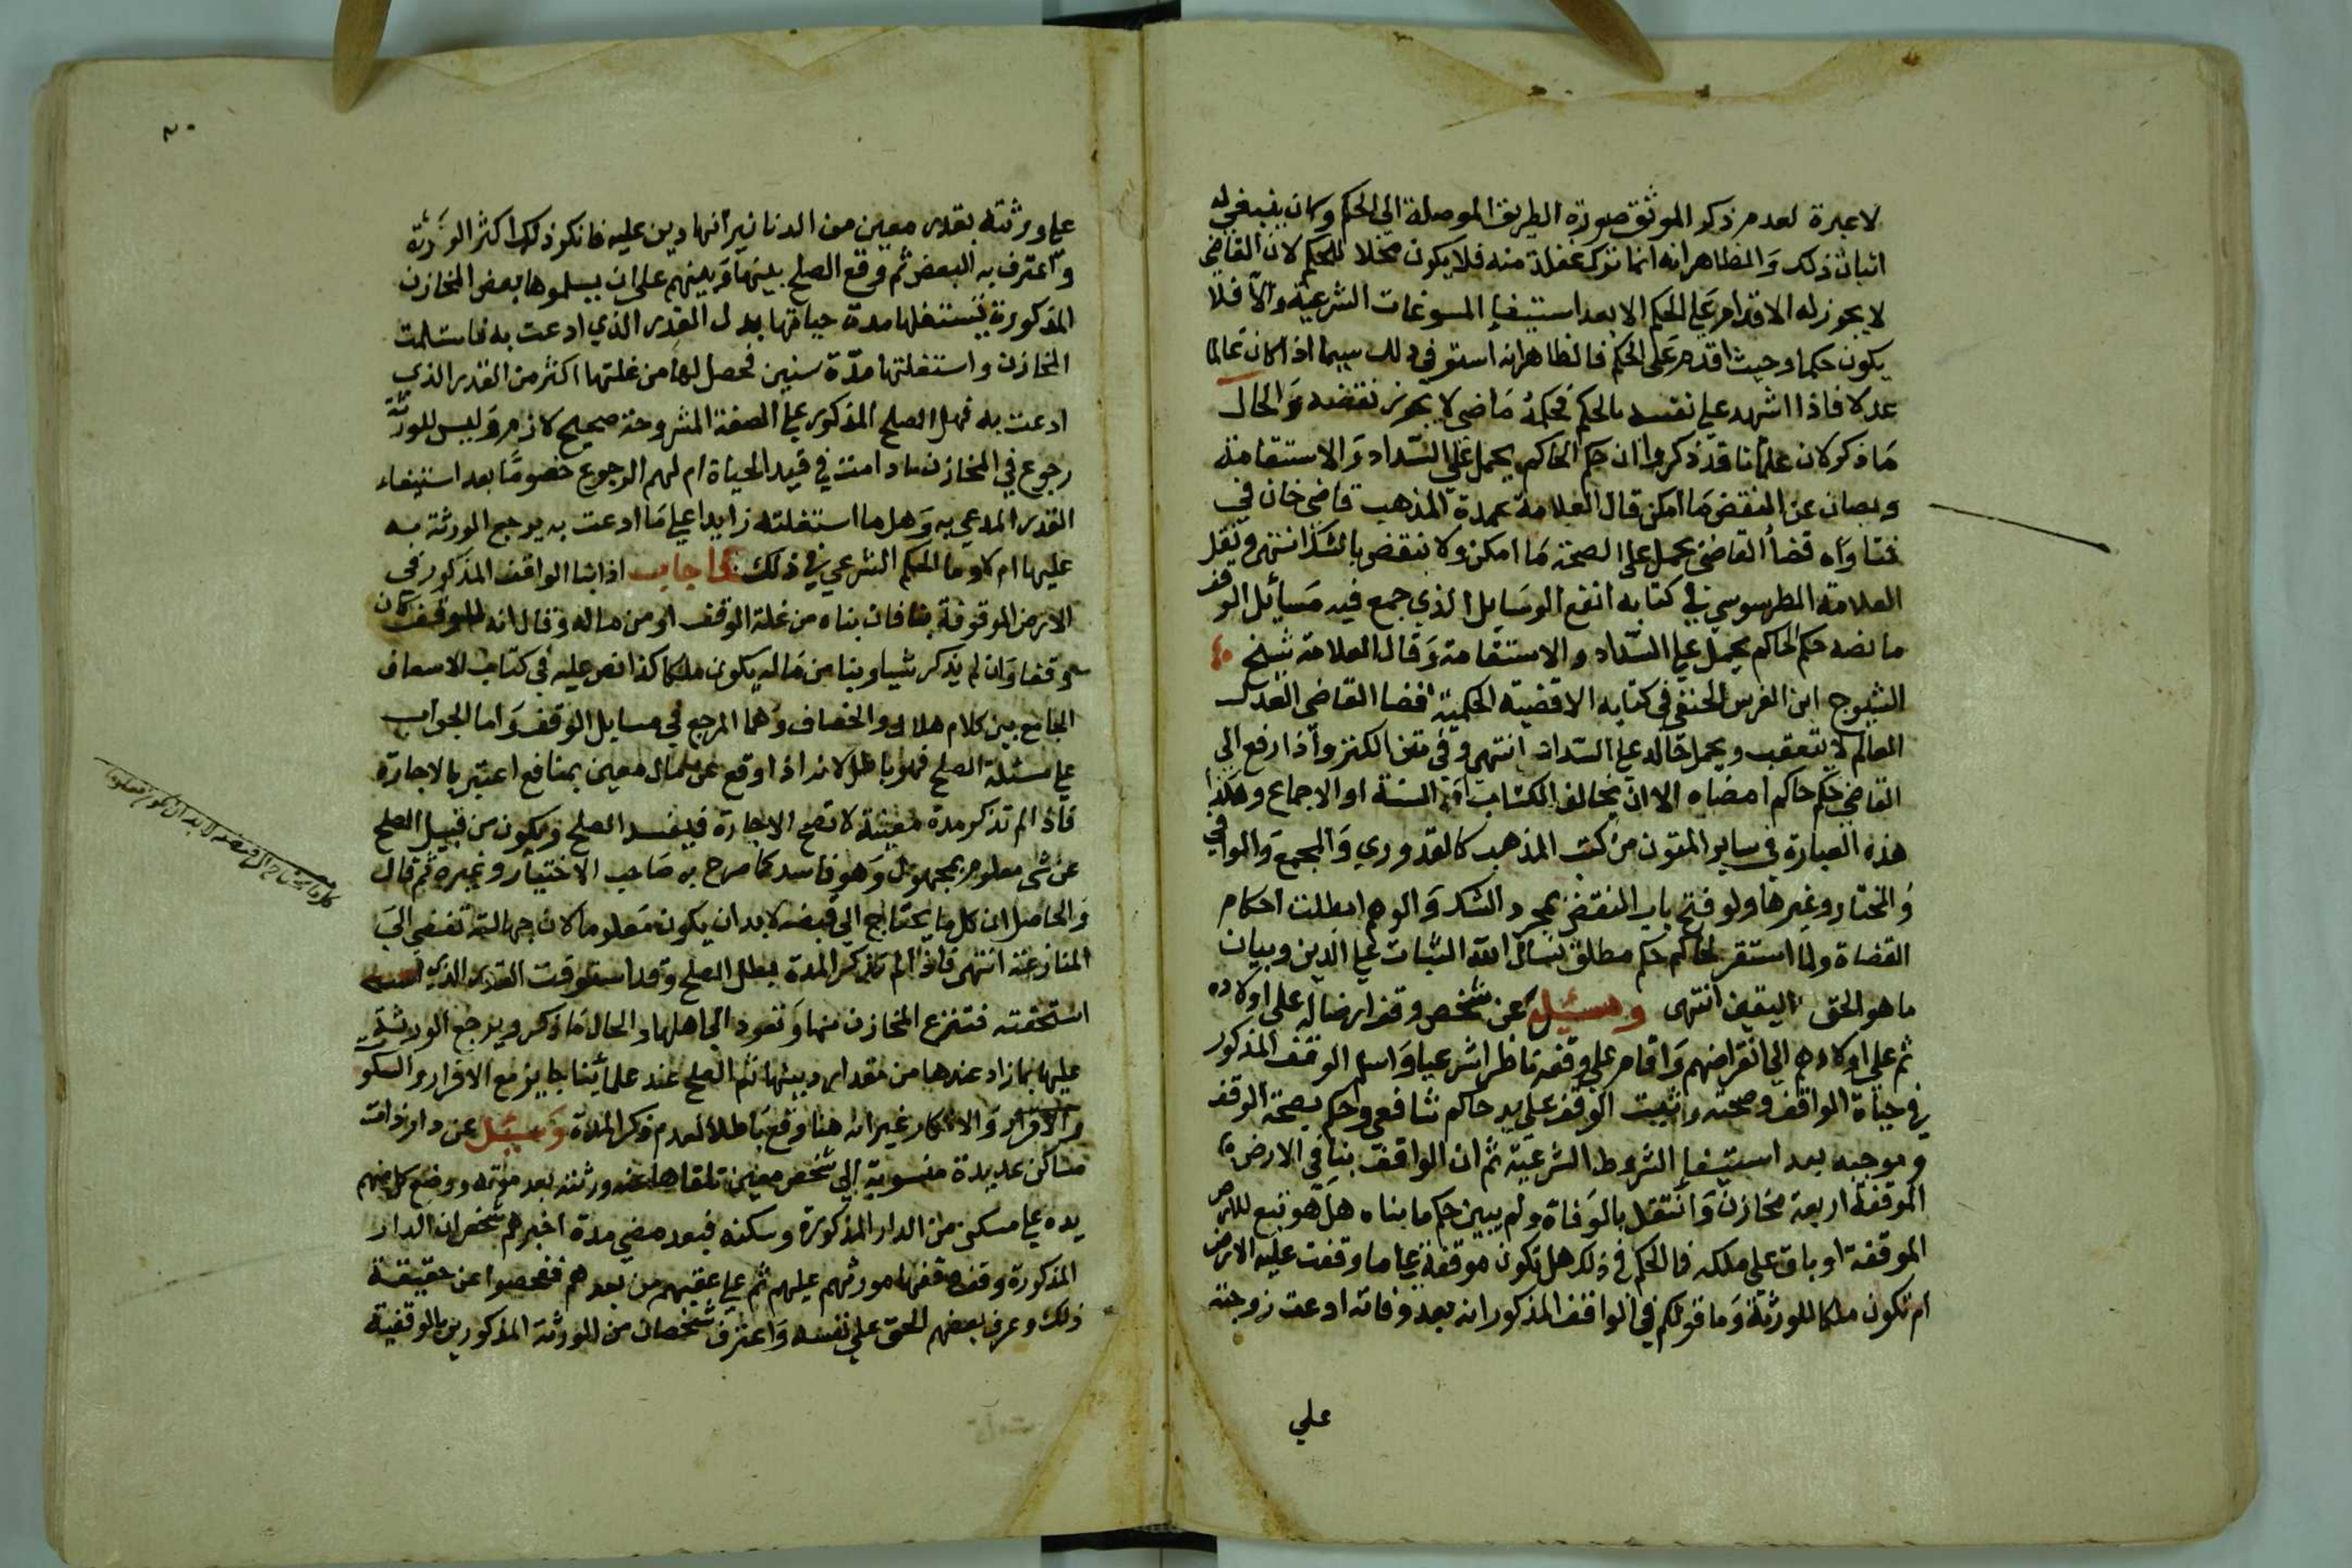 لا عبرة لعدم ذكر الموثق صورة الطريق الموصلة الي الحكم وكان ينبغي له
اثبات ذلك والظاهر انه انما تركه غفلة منه فلا يكون مخلا للحكم لان القاضي
لا يجوز له الاقدام علي الحكم الا بعد استيفا المسوغات الشرعية والا فلا
يكون حكما وحيث اقدم على الحكم فالظاهر انه استوفي ذلك سيما اذا كان عالما
عدلا فاذا اشهد علي نفسه بالحكم فحكمه ماضي لا يجوز نقضه والحال
ما ذكر لان علمائنا قد ذكروا ان حكم الحاكم يحمل على السداد والاستقامة
ويصان عن النقض ما امكن قال العلامة عمدة المذهب قاضي خان في
فتاواه قضأ القاضي يحمل علي الصحة ما امكن ولا ينقض بالشك انتهى ونقل
العلامة الطرسوسي في كتابه انفع الوسايل الذي جمع فيه مسايل الوقف
ما نصه حكم الحاكم يحمل علي السداد والاستقامة وقال العلامة شيخ
الشيوخ ابن الغرس الحنفي في كتابه الاقضية الحكمية اقضا القاضي العدل
العالم لا يتعقب ويحمل حاله علي السداد انتهى وفي متن الكنز واذا رفع الي
القاضي حكم حاكم امضاه الا ان يخالف الكتاب او السنة او الاجماع وهكذا
هذه العبارة في ساير المتون من كتب المذهب كالقدوري والمجمع والوافي
والمختار وغيرها ولو فتح باب النقض بمجرد الشك والوهم لبطلت احكام
القضاة ولما استقر لحاكم حكم مطلق نسال الله الثبات علي الدين وبيان
ما هو الحق اليقين انتهى وسئيل عن شخص وقف ارضا له على اولاده
ثم على اولادهم الي انقراضهم واقام علي وقفه ناظرا شرعيا واسلم الوقف المذكور
في حياة الواقف وصحته واثبت الوقف علي يد حاكم شافعي وحكم بصحة الوقف
وموجبه بعد استيفا الشروط الشرعية ثم ان الواقف بنا في الارض
الموقفة اربعة مخازن وانتقل بالوفاة ولم يبين حكم ما بناه هل هو تبع للارض
الموقفة او باق على ملكه فما الحكم في ذلك هل تكون موقفة علي ما وقفت عليه الارض
ام تكون ملكا للورثة وما قولكم في الواقف المذكور انه بعد وفاته ادعت زوجته
علي
علي ورثته بقدر معين من الدنانير انها دين عليه فانكر ذلك اكثر الورثة
واعترف به البعض ثم وقع الصلح بينها وبينهم على ان يسلموها بعض المخازن
المذكورة تستغلها مدة حياتها بدل القدر الذي ادعت به فاستلمت
المخازن واستغلتها مدة سنين فحصل لها من غلتها اكثر من القدر الذي
ادعت به فهل الصلح المذكور علي الصفة المشروحة صحيح لازم وليس للورثة
رجوع في المخازن ما دامت في قيد الحياة ام لهم الرجوع خصوصا بعد استيفاء
القدر المدعي به وهل ما استغلته زايدا علي ما ادعت به يرجع الورثة به
عليها ام لا وما الحكم الشرعي في ذلك فاجاب اذا بنا الواقف المذكور في
الارض الموقوفة بنا فان بناه من غلة الوقف او من ماله وقال انه للوقف كان
وقفا وان لم يذكر شيا وبنا من ماله يكون ملكا كذا نص عليه في كتاب الاسعاف
الجامع بين كلام هلال والخصاف وهما المرجع في مسايل الوقف واما الجواب
علي مسئلة الصلح فهو باطل لانه اذا وقع عن مال معين بمنافع اعتبر بالاجارة
فاذا لم تذكر مدة معينة لا تصح الاجارة فيفسد الصلح ويكون من قبيل الصلح
عن شي معلوم بمجهول وهو فاسد كما صرح به صاحب الاختيار وغيره ثم قال
والحاصل ان كل ما يحتاج الي قبضه لا بد ان يكون معلوما لان جهالته تفضي الي
المنازعة انتهى فاذا لم تذكر المدة بطل الصلح وقد استوفت القدر الذي
استحقته فتنزع المخازن منها وتعود الي اهلها والحال ما ذكر ويرجع الورثة
عليها بما زاد عندها من مقدار دينها ثم الصلح عند علمائنا جايز مع الاقرار والسكو
والاقرار والانكار غير انه هنا وقع باطلا لعدم ذكر المدة وسئيل عن دار ذات
مساكن عديدة منسوبة الي شخص معين تلقاها عنه ورثته بعد موته ووضع كل منهم
يده علي مسكن من الدار المذكورة وسكنه فبعد مضي مدة اخبرهم شخص ان الدار
المذكورة وقف وقفها مورثهم عليهم ثم علي عقبهم من بعدهم ففحصوا عن حقيقة
ذلك وعرف بعضهم الحق علي نفسه واعترف شخصان من الورثة المذكورين بالوقفية